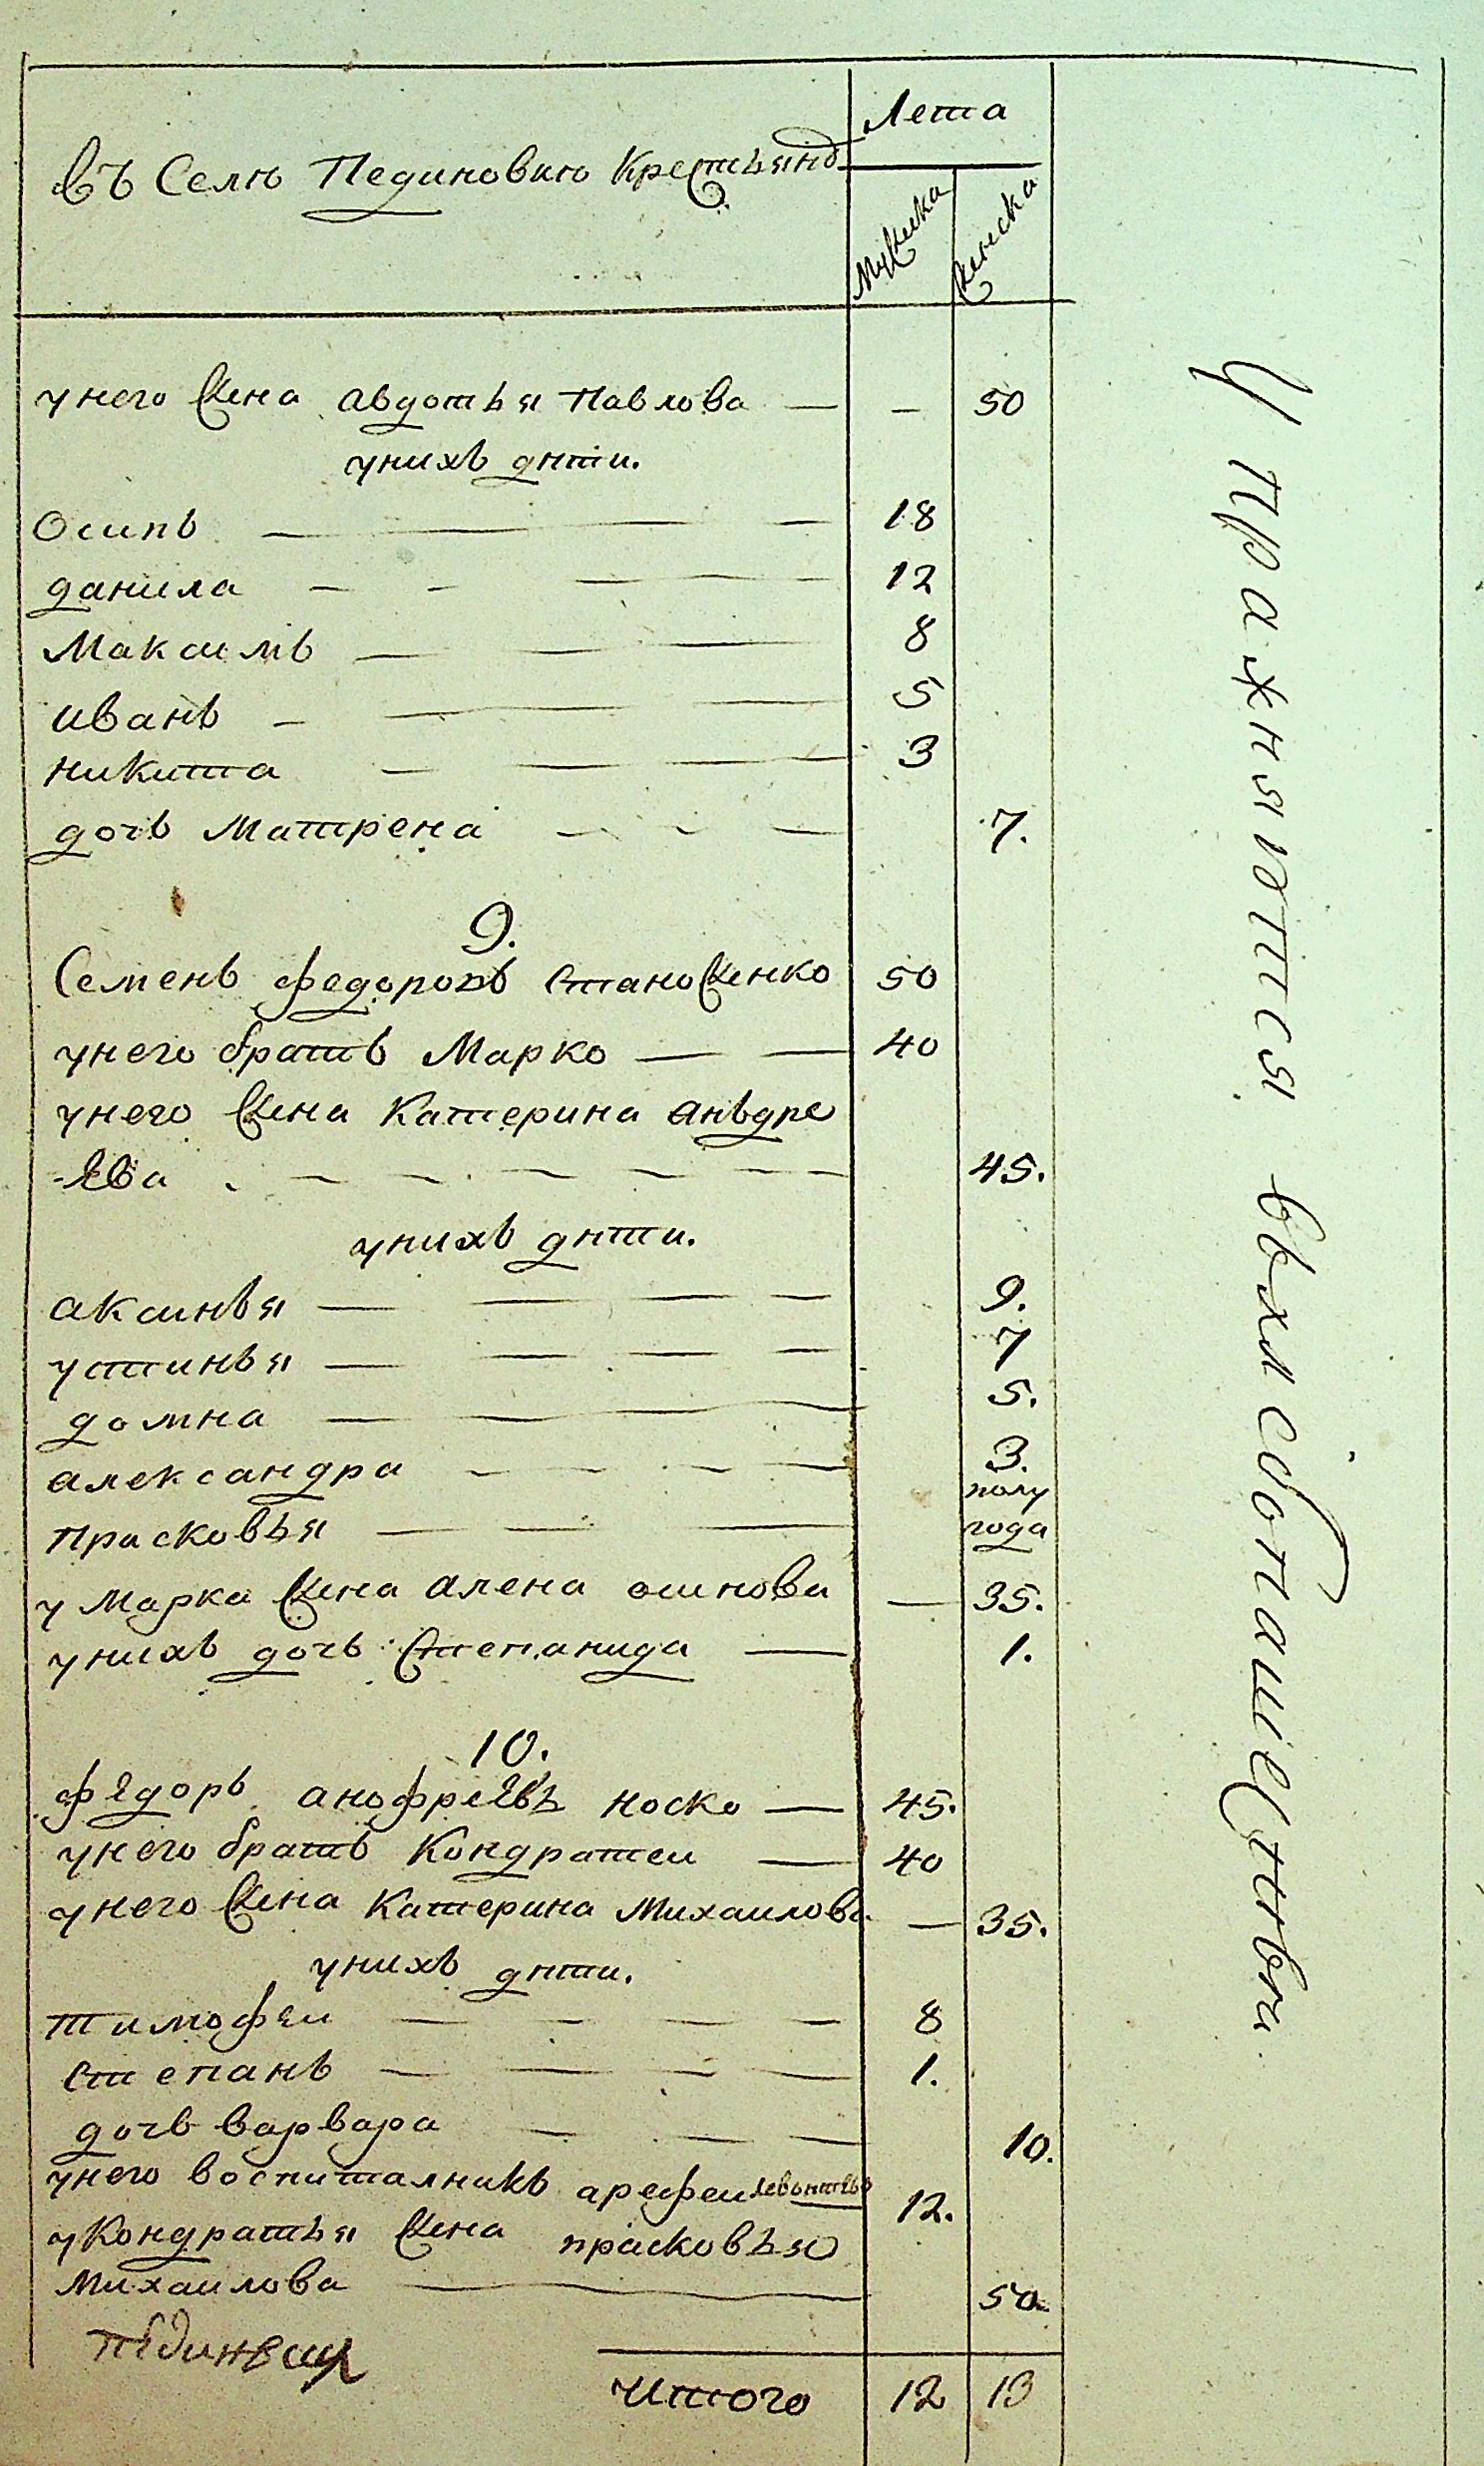 Въ Селѣ Пединовкѣ Крестьянъ
Лета
Мужска
женска
у него жена авдотья Павлова — — 50
у нихъ дѣти.
Осипъ — — — 18
данила — — — 12
Максимъ — — — 8
иванъ — — — 5
никита — — — 3
дочь Матрена — — — 7.
9.
Семенъ федоровъ Станоженко 50
у него братъ Марко — — 40
у него жена Катерина аньдре
-ева — — — 45.
у нихъ дѣти.
аксинья — — — 9.
устинья — — — 7
домна — — — 5.
александра — — — 3.
Прасковья — — — полу
года
у Марка жена алена осипова — 35.
у нихъ дочь Степанида — 1.
10.
федоръ анофреевъ носко — 45.
у него братъ Кондратеи — 40
у него жена Катерина Михаилова — 35.
у нихъ дѣти.
тимофеи — — — 8
степанъ — — — 1.
дочь варвара — — — 10.
у него воспиталникъ арефеи левонтьевъ 12.
у Кондратья жена прасковья
Михаилова — 50.
Итого 12 13
Упражняются въ хлебопашестьви